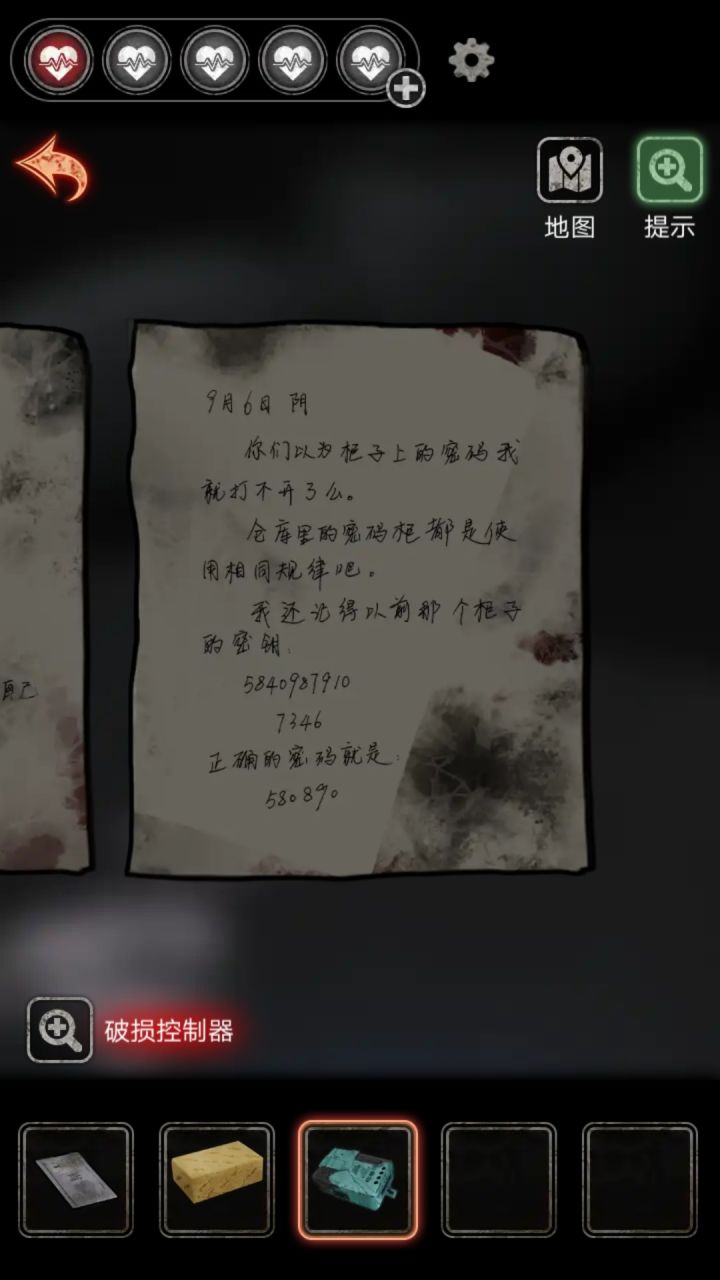 地图
提示
9月6日 阴
你们以为柜子上的密码我
就打不开了么。
仓库里的密码柜都是使
用相同规律吧。
我还记得以前那个柜子
的密钥:
5840987910
7346
正确的密码就是:
580890
自己
破损控制器